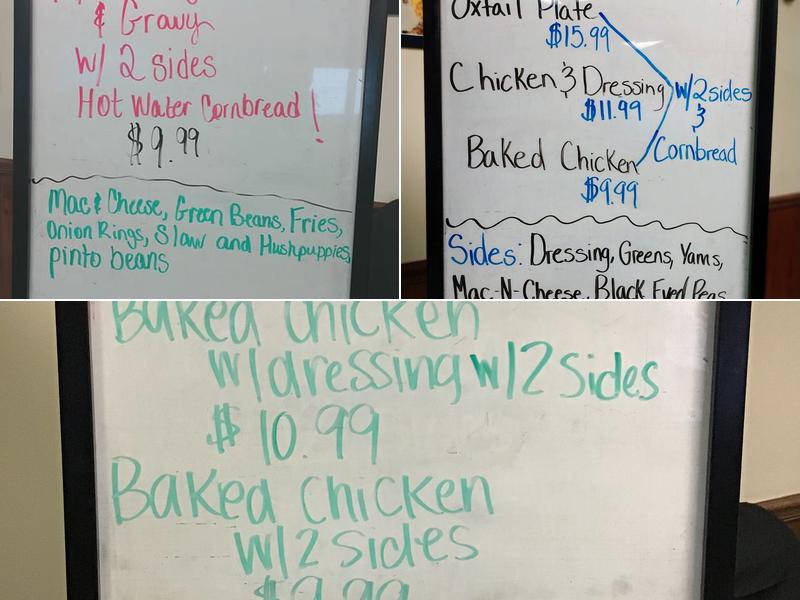 & Gravy
W/ 2 sides
Hot Water Cornbread!
$9.99
Mac & Cheese, Green Beans, Fries,
Onion Rings, Slaw and Hushpuppies,
pinto beans
Oxtail Plate
$15.99
Chicken & Dressing
$11.99
Baked Chicken
$9.99
w/2 sides
&
Cornbread
Sides: Dressing, Greens, Yams,
Mac-N-Cheese, Black Eyed Peas
Baked Chicken
w/dressing w/2 sides
$10.99
Baked Chicken
w/2 sides
$9.99